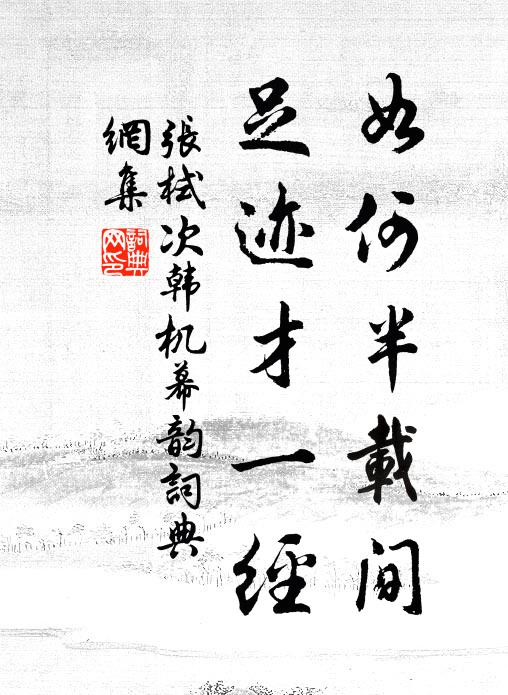 如何半載間
足迹才一經
張栻次韩机幕韵詞典
網集
詞典網印